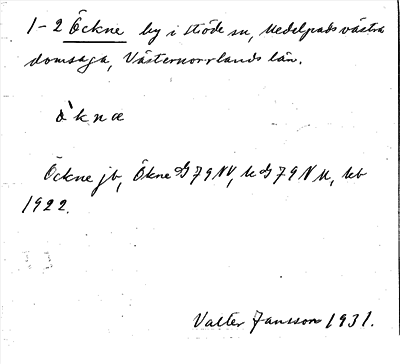 1-2 Öckne by i Stöde sn, Medelpads västra
domsaga, Västernorrlands län.
ö`knæ
Öckne jb, Ökne GJ79NV, k GJ79NM, kb
1922.
Valter Jansson 1931.